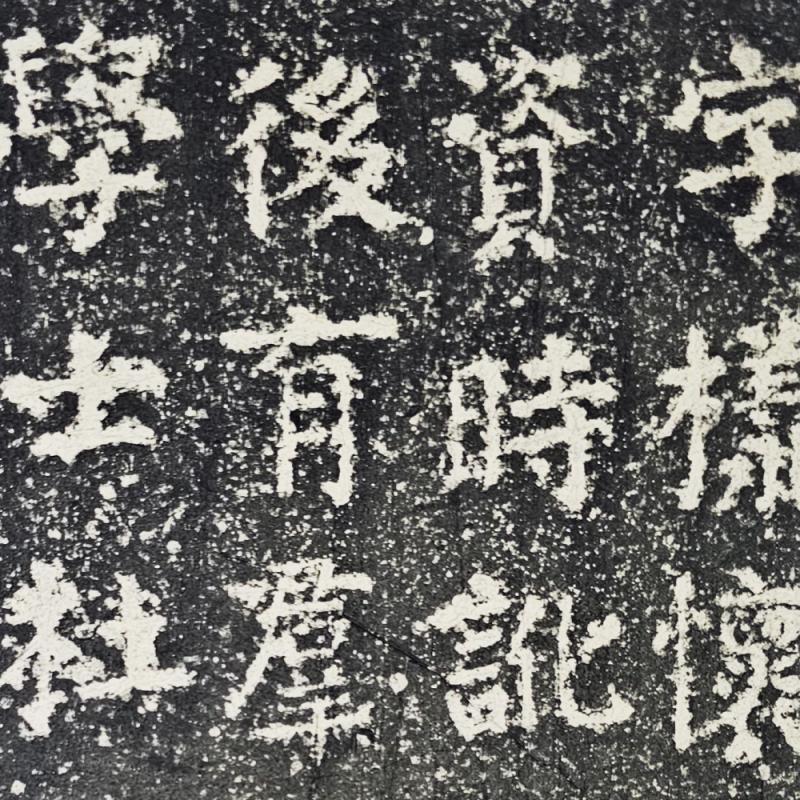 字樣懷
資時訛
後有羣
學士杜